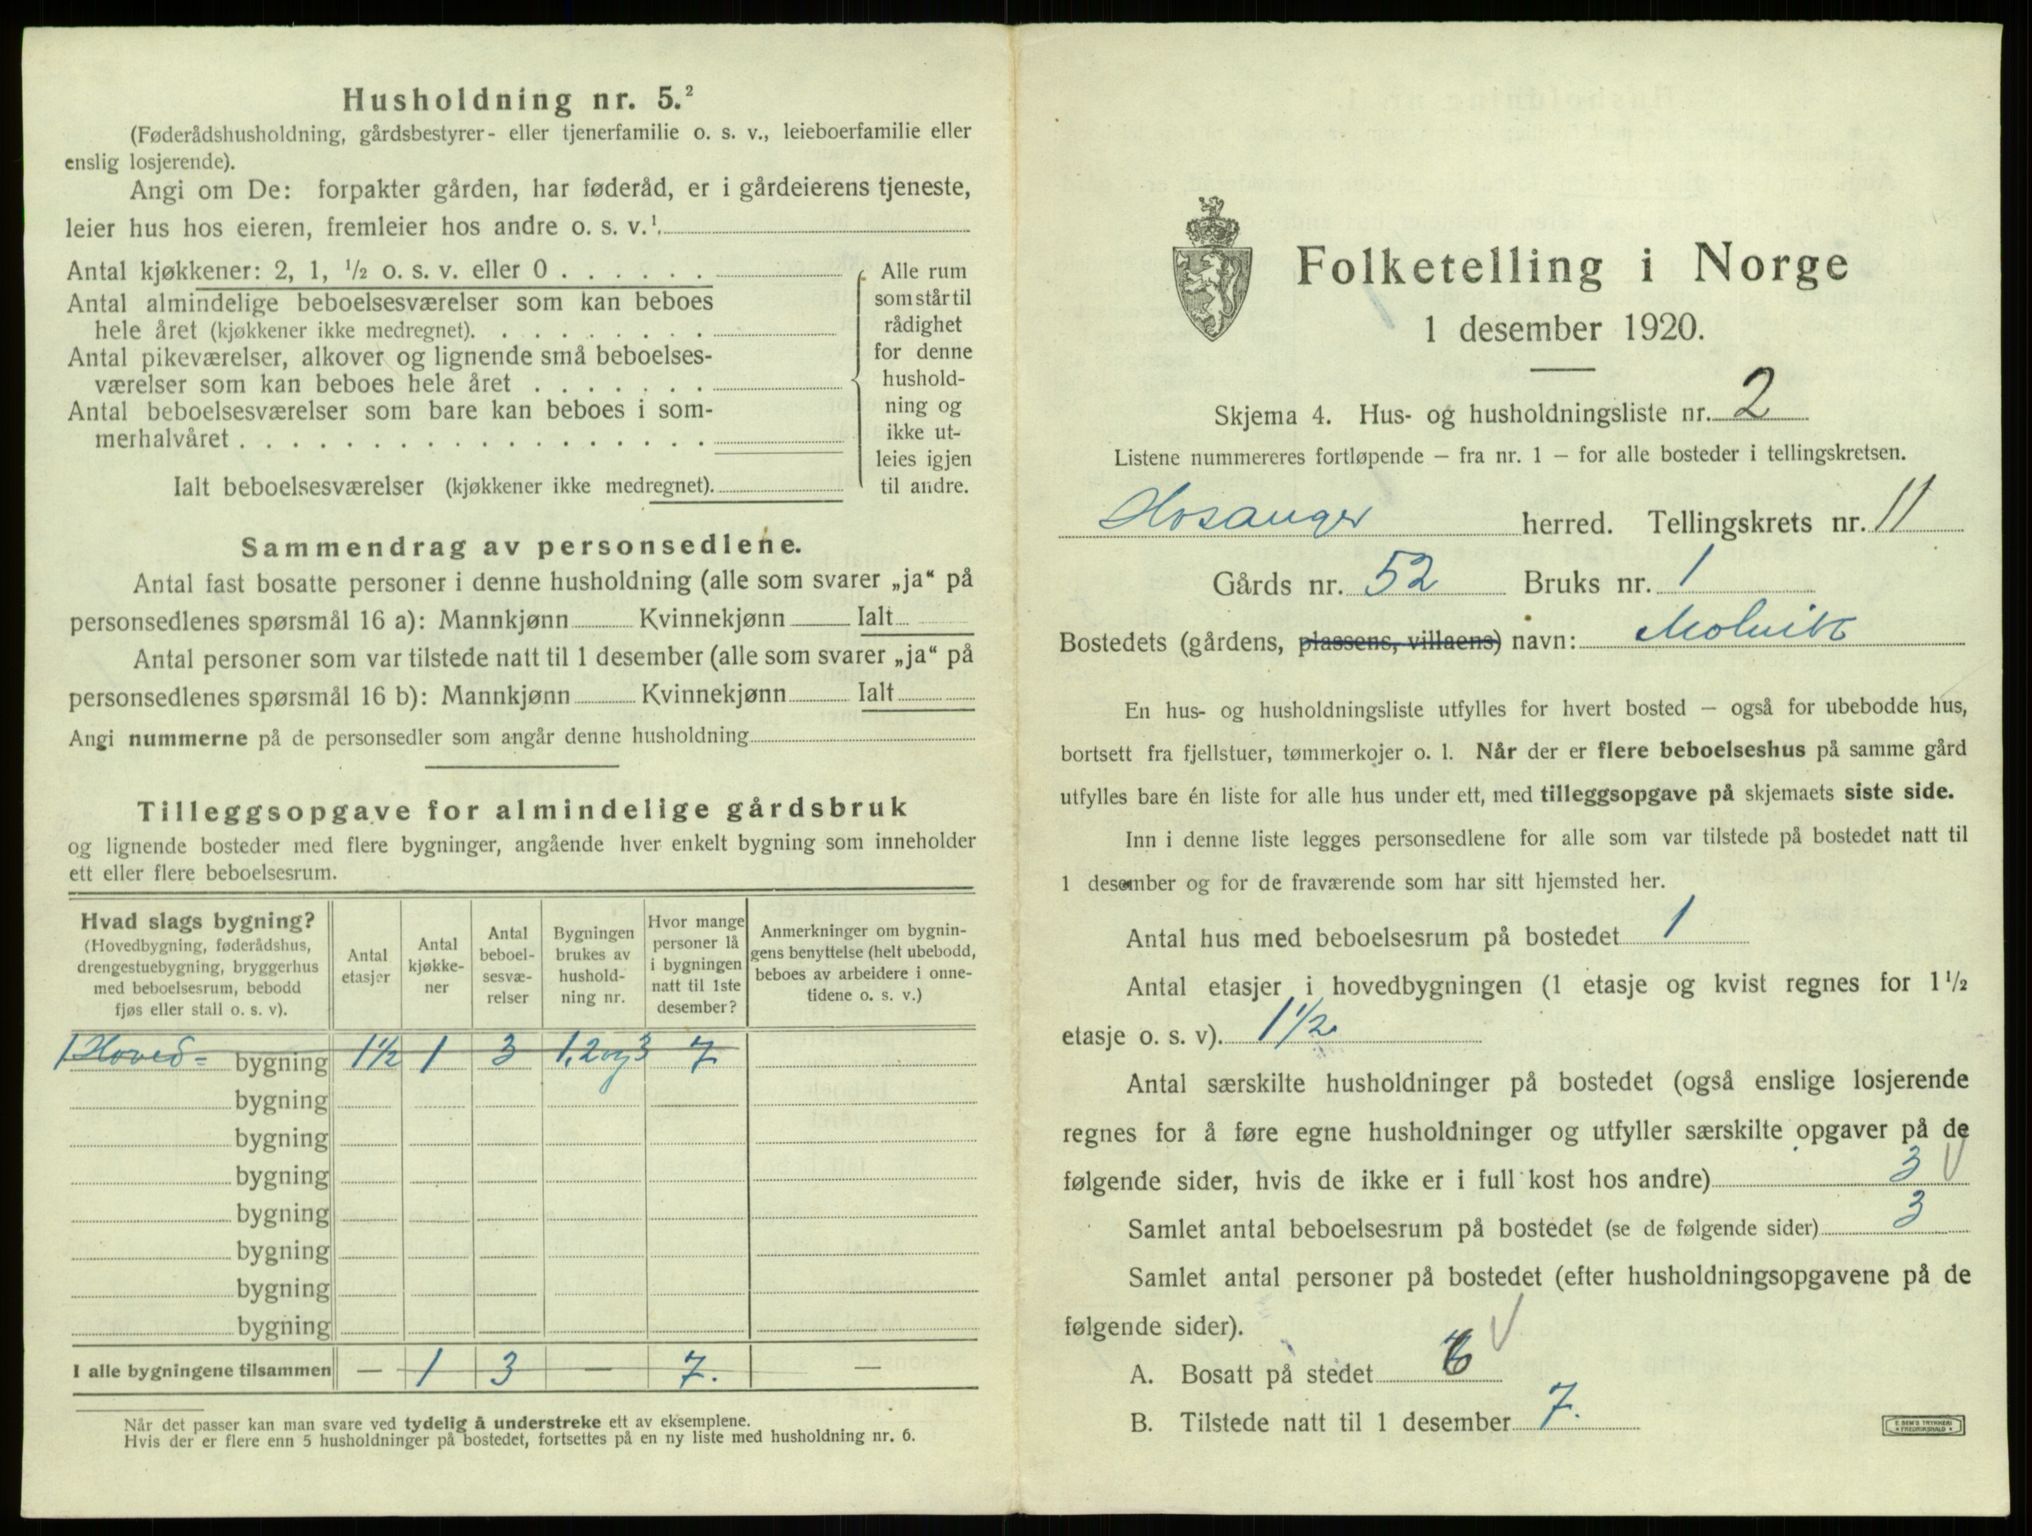 Husholdning nr. 5.²
(Føderådshusholdning, gårdsbestyrer- eller tjenerfamilie o. s. v., leieboerfamilie eller
enslig losjerende).
Angi om De: forpakter gården, har føderåd, er i gårdeierens tjeneste,
leier hus hos eieren, fremleier hos andre o. s. v.¹
Antal kjøkkener: 2, 1, ½ o. s. v. eller 0 . . . . . .
Antal almindelige beboelsesværelser som kan beboes
hele året (kjøkkener ikke medregnet). . . . . . . . .
Antal pikeværelser, alkover og lignende små beboelses-
værelser som kan beboes hele året . . . . . . .
Antal beboelsesværelser som bare kan beboes i som-
merhalvåret . . . . . . . . . . . . . . . . . .
Ialt beboelsesværelser (kjøkkener ikke medregnet).
Alle rum
som står til
rådighet
for denne
hushold-
ning og
ikke ut-
leies igjen
til andre.
Sammendrag av personsedlene.
Antal fast bosatte personer i denne husholdning (alle som svarer „ja“ på
personsedlenes spørsmål 16 a): Mannkjønn Kvinnekjønn Ialt
Antal personer som var tilstede natt til 1 desember (alle som svarer „ja“ på
personsedlenes spørsmål 16 b): Mannkjønn Kvinnekjønn Ialt
Angi nummerne på de personsedler som angår denne husholdning
Tilleggsopgave for almindelige gårdsbruk
og lignende bosteder med flere bygninger, angående hver enkelt bygning som inneholder
ett eller flere beboelsesrum.
Hvad slags bygning?
(Hovedbygning, føderådshus,
drengestuebygning, bryggerhus
med beboelsesrum, bebodd
fjøs eller stall o. s. v).
Antal
etasjer
Antal
kjøkke-
ner
Antal
beboel-
sesvæ-
relser
Bygningen
brukes av
hushold-
ning nr.
Hvor mange
personer lå
i bygningen
natt til 1ste
desember?
Anmerkninger om bygnin-
gens benyttelse (helt ubebodd,
beboes av arbeidere i onne-
tidene o. s. v.)
1 Hoved= bygning 1½ 1 3 1, 2 og 3 7
bygning
bygning
bygning
bygning
bygning
bygning
bygning
I alle bygningene tilsammen — 1 3 — 7. —
Når det passer kan man svare ved tydelig å understreke ett av eksemplene.
Hvis der er flere enn 5 husholdninger på bostedet, fortsettes på en ny liste med husholdning nr. 6.
Folketelling i Norge
1 desember 1920.
Skjema 4. Hus- og husholdningsliste nr. 2
Listene nummereres fortløpende – fra nr. 1 – for alle bosteder i tellingskretsen.
Hosanger herred. Tellingskrets nr. 11
Gårds nr. 52 Bruks nr. 1
Bostedets (gårdens, plassens, villaens) navn: Molvik
En hus- og husholdningsliste utfylles for hvert bosted – også for ubebodde hus,
bortsett fra fjellstuer, tømmerkojer o. l. Når der er flere beboelseshus på samme gård
utfylles bare én liste for alle hus under ett, med tilleggsopgave på skjemaets siste side.
Inn i denne liste legges personsedlene for alle som var tilstede på bostedet natt til
1 desember og for de fraværende som har sitt hjemsted her.
Antal hus med beboelsesrum på bostedet 1
Antal etasjer i hovedbygningen (1 etasje og kvist regnes for 1½
etasje o. s. v). 1½.
Antal særskilte husholdninger på bostedet (også enslige losjerende
regnes for å føre egne husholdninger og utfyller særskilte opgaver på de
følgende sider, hvis de ikke er i full kost hos andre) 3
Samlet antal beboelsesrum på bostedet (se de følgende sider) 3
Samlet antal personer på bostedet (efter husholdningsopgavene på de
følgende sider).
A. Bosatt på stedet
B. Tilstede natt til 1 desember 7.
E. SEM'S TRYKKERI
FREDRIKSHALD